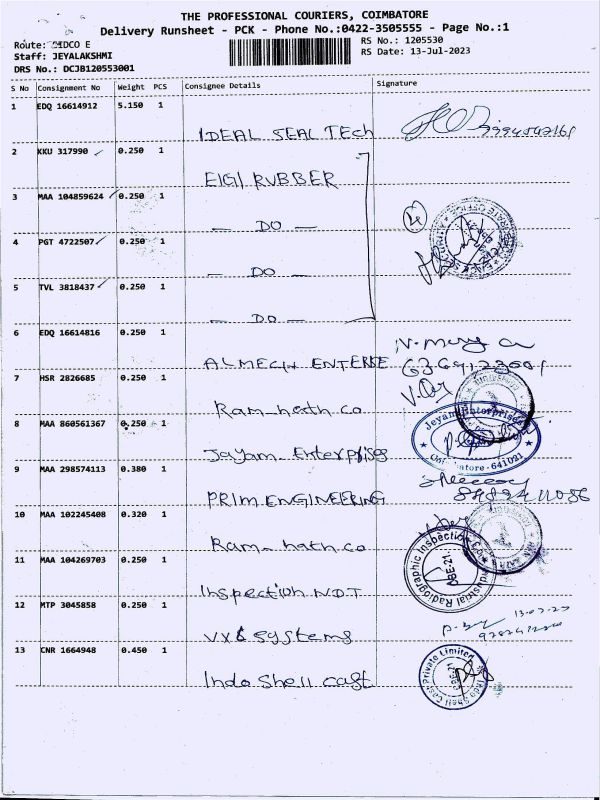 THE PROFESSIONAL COURIERS, COIMBATORE
Delivery Runsheet - PCK - Phone No.:0422-3505555 - Page No.:1
Route: SIDCO E RS No.: 1205530
Staff: JEYALAKSHMI RS Date: 13-Jul-2023
DRS No.: DCJB120553001
S No Consignment No Weight PCS Consignee Details Signature
1 EDQ 16614912 5.150 1
IDEAL SEAL TECH
2 KKU 317990 0.250 1
EIGI RUBBER
3 MAA 104859624 0.250 1
— DO —
4 PGT 4722507 0.250 1
— DO —
5 TVL 3818437 0.250 1
— DO —
6 EDQ 16614816 0.250 1
ALMECH ENTERSE
7 HSR 2826685 0.250 1
Ram-hath co
8 MAA 860561367 0.250 1
Jayam Enterprises
Jeyam Enterprises
Coimbatore - 641021
9 MAA 298574113 0.380 1
PRIM ENGINEERING
10 MAA 102245408 0.320 1
Ram-hath co
11 MAA 104269703 0.250 1
Industrial Radiographic Inspection
CBE-21.
Inspection N.D.T
12 MTP 3045858 0.250 1
13-07-23
VXL systems
13 CNR 1664948 0.450 1
Indo Shell Cast Private Limited
CBE-21
Indo Shell cast